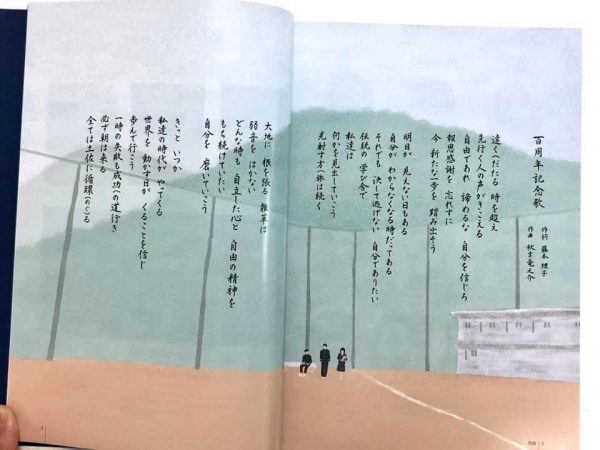 百周年記念歌
作詞 藤本 理子
作曲 秋吉竜之介
遠くへだたる 時を超え
先行く人の声がきこえる
自由であれ 諦めるな 自分を信じろ
報恩感謝を 忘れずに
今 新たな一歩を 踏み出そう
明日が 見えない日もある
自分が わからなくなる時だってある
それでも 決して逃げない 自分でありたい
伝統の 学び舎で
私達は
何かを見出していこう
光射す方へ旅は続く
大地に 根を張る 雑草は
弱音を はかない
どんな時も 自立した心と 自由の精神を
もち続けていたい
自分を 磨いていこう
きっと いつか
私達の時代が やってくる
世界を 動かす日が くることを信じ
歩んで行こう
一時の失敗も成功への道行き
必ず朝は来る
全ては土佐に循環(めぐ)る